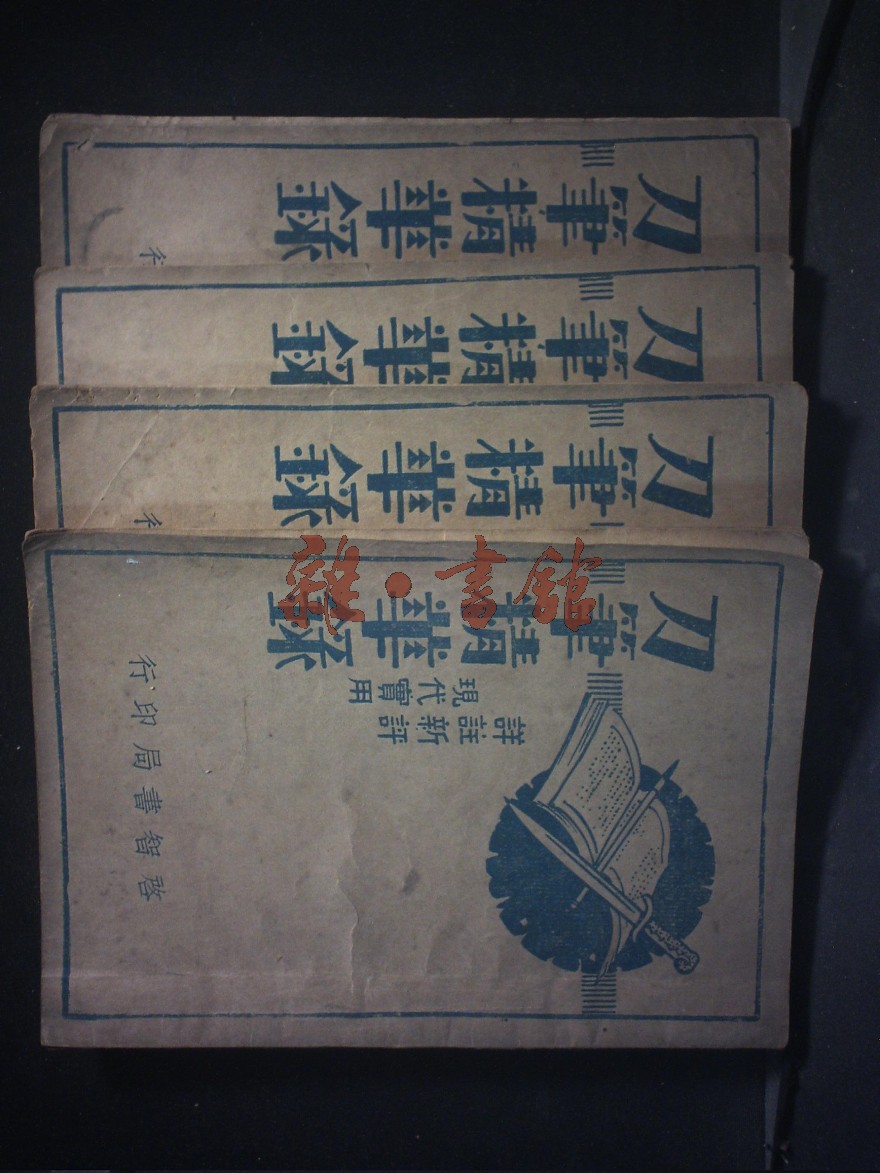 刀筆精華錄
行
刀筆精華錄
刀筆精華錄
行
刀筆精華錄
詳註新評
現代實用
啓智書局印行
雜·書館